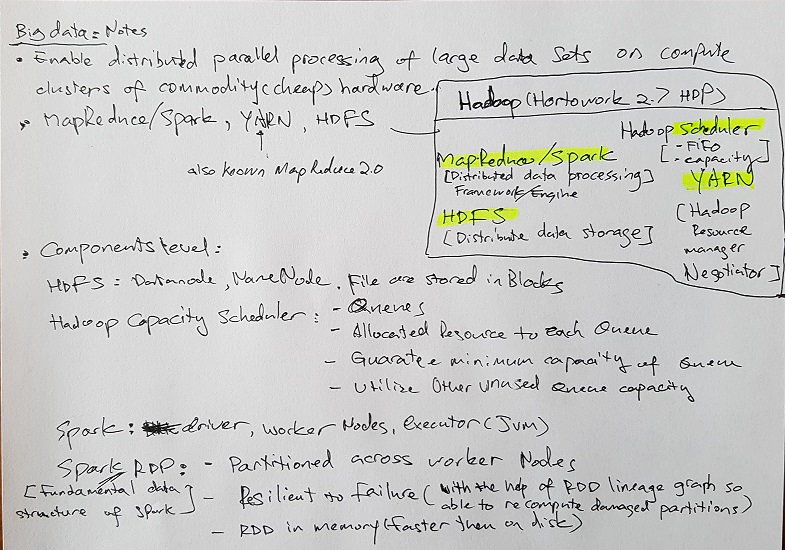 Big data = Notes
• Enable distributed parallel processing of large data sets on compute
clusters of commodity(cheap) hardware.
• MapReduce/Spark, YARN, HDFS
also known MapReduce 2.0
Hadoop (Hortowork 2.7 HDP)
Hadoop Scheduler
[ - FIFO
- capacity ]
MapReduce/Spark
[Distributed data processing]
Framework/Engine
YARN
[Hadoop
Resource
manager
Negotiator]
HDFS
[Distribute data storage]
• Components level:
HDFS = Datanode, NameNode. File are stored in Blocks
Hadoop Capacity Scheduler: - Queues
- Allocated Resource to Each Queue
- Guarate e minimum capacity of Queue
- Utilize Other unused Queue capacity
Spark: driver, worker Nodes, executor (JVM)
Spark RDP: - Partitioned across worker Nodes
[Fundamental data
structure of Spark]
- Resilient to failure (with the help of RDD lineage graph so
able to recompute damaged partitions)
- RDD in memory (faster then on disk)